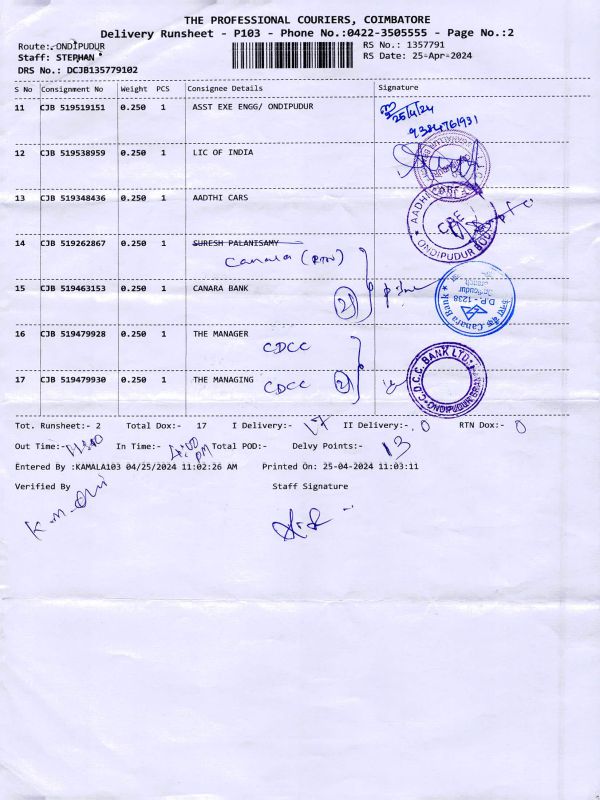 THE PROFESSIONAL COURIERS, COIMBATORE
Delivery Runsheet - P103 - Phone No.:0422-3505555 - Page No.:2
Route: ONDIPUDUR
RS No.: 1357791
Staff: STEPHAN
RS Date: 25-Apr-2024
DRS No.: DCJB135779102
S No Consignment No Weight PCS Consignee Details Signature
11 CJB 519519151 0.250 1 ASST EXE ENGG/ ONDIPUDUR
25/4/24
9384761931
12 CJB 519538959 0.250 1 LIC OF INDIA
13 CJB 519348436 0.250 1 AADTHI CARS
AADHI CARE
ONDIPUDUR
14 CJB 519262867 0.250 1 SURESH PALANISAMY
Canara (RTN)
15 CJB 519463153 0.250 1 CANARA BANK
2
Canara Bank
D.P. - 1238
16 CJB 519479928 0.250 1 THE MANAGER
CDCC
17 CJB 519479930 0.250 1 THE MANAGING
CDCC 2
C.D.C.C. BANK LTD.
ONDIPUDUR
Tot. Runsheet:- 2 Total Dox:- 17 I Delivery:- 17 II Delivery:- 0 RTN Dox:- 0
Out Time:- In Time:- 4:00 PM Total POD:- Delvy Points:- 13
Entered By :KAMALA103 04/25/2024 11:02:26 AM Printed On: 25-04-2024 11:03:11
Verified By Staff Signature